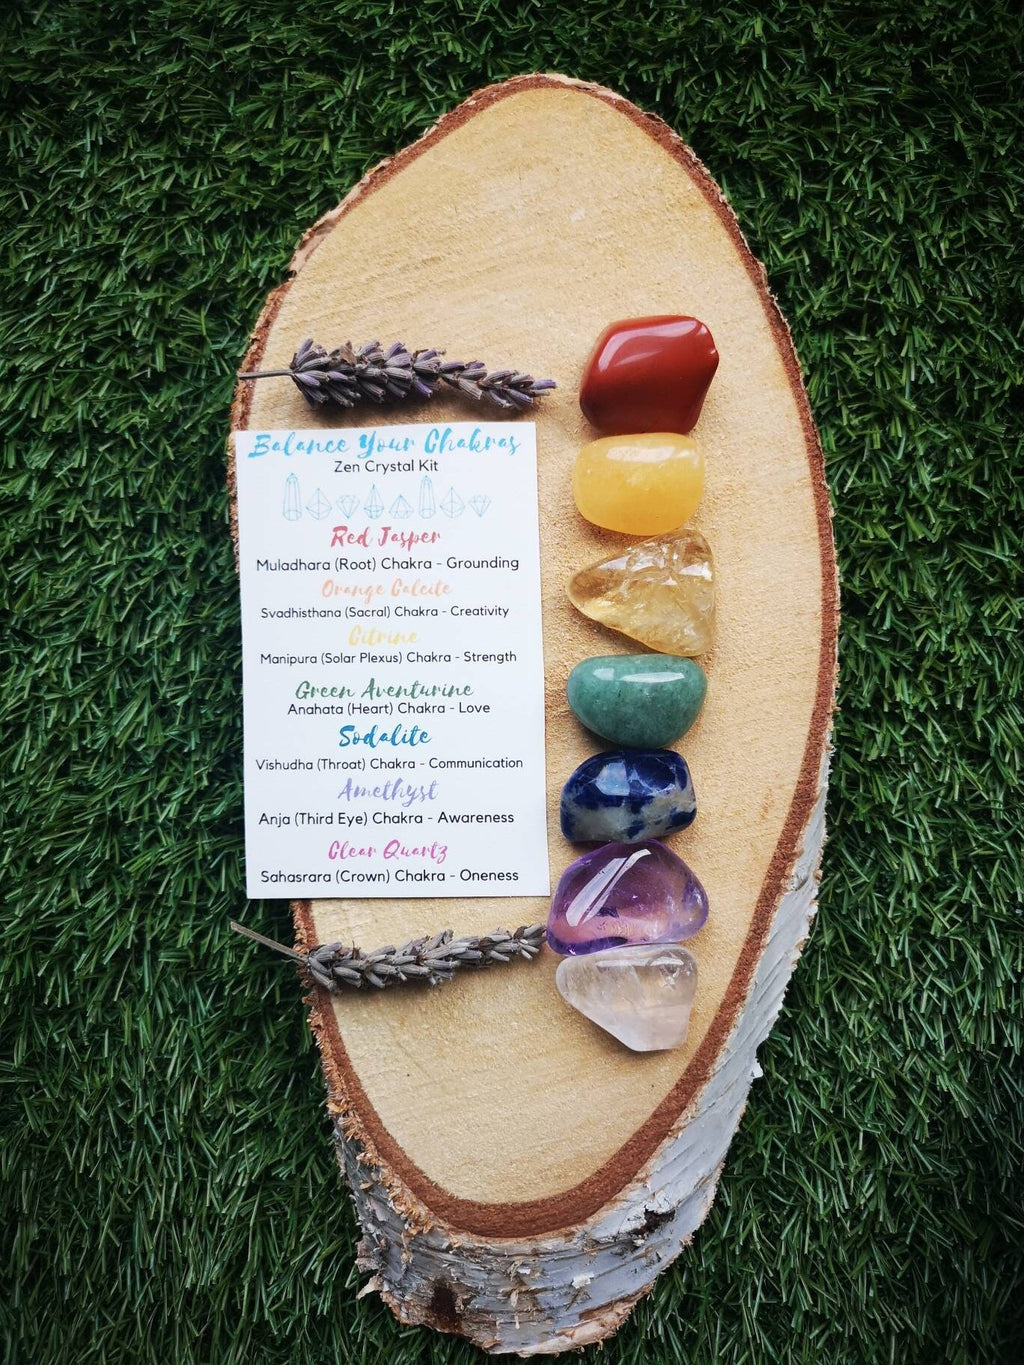 Balance Your Chakras
Zen Crystal Kit
Red Jasper
Muladhara (Root) Chakra - Grounding
Orange Calcite
Svadhisthana (Sacral) Chakra - Creativity
Citrine
Manipura (Solar Plexus) Chakra - Strength
Green Aventurine
Anahata (Heart) Chakra - Love
Sodalite
Vishudha (Throat) Chakra - Communication
Amethyst
Anja (Third Eye) Chakra - Awareness
Clear Quartz
Sahasrara (Crown) Chakra - Oneness